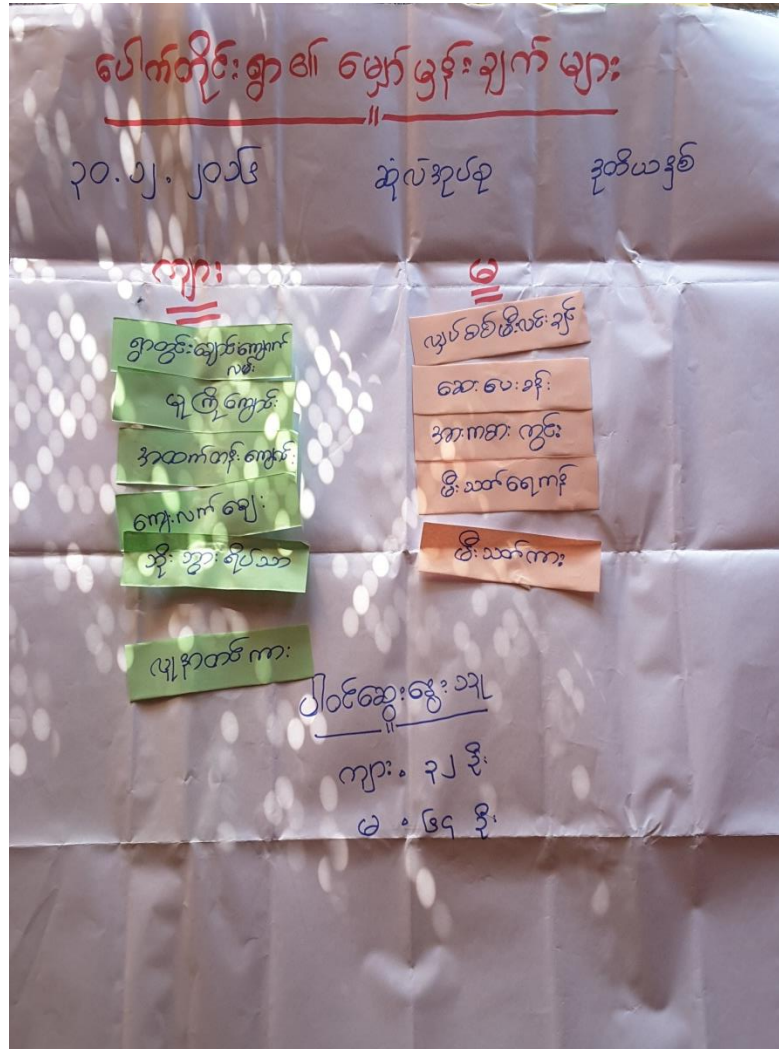 ပေါက်တိုင်းရွာ၏ မျှော်မှန်းချက်များ
၃၀.၁၂.၂၀၁၆ ဆုံလဲအုပ်စု ဒုတိယနှစ်
ကျား
ရွာတွင်းချောင်းကျောက်
လမ်း
မူကြိုကျောင်း
အထက်တန်းကျောင်း
ကျေးလက်ဆေး
ဘိုးဘွားရိပ်သာ
လူနာတင်ကား
မ
လျှပ်စစ်မီးလင်းချင်
ဆေးပေးခန်း
အားကစားကွင်း
မီးသတ်ရေကန်
မီးသတ်ကား
ပါဝင်ဆွေးနွေးသူ
ကျား. ၃၂ ဦး
မ . ၆၄ ဦး